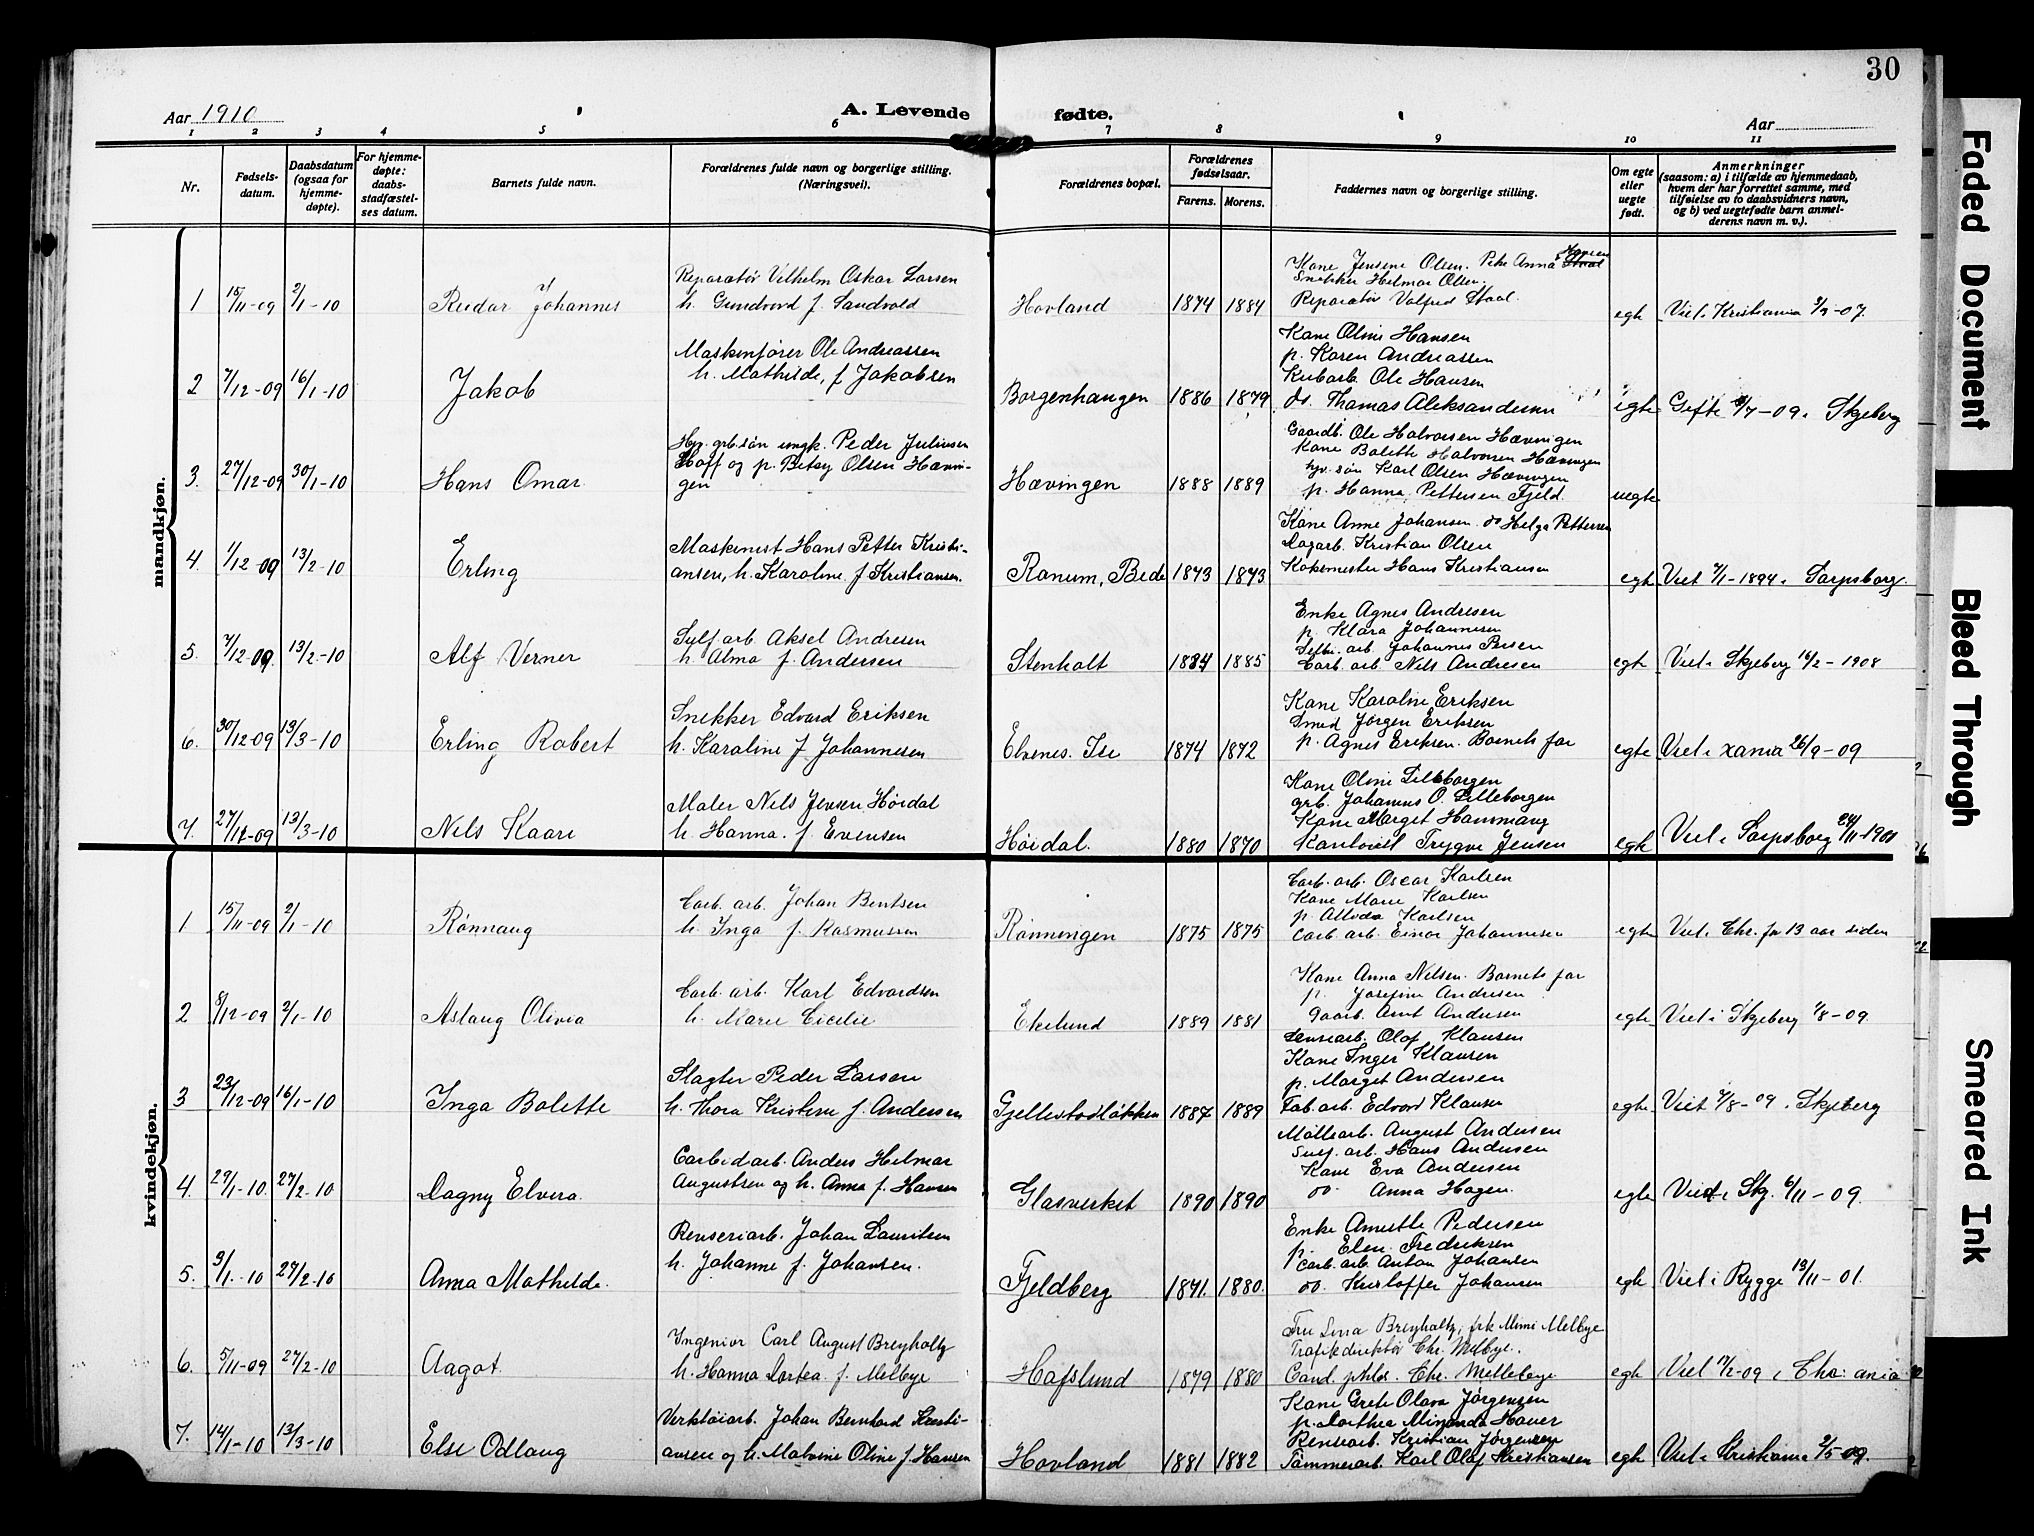 30
Aar 1910
A. Levende fødte.
Aar
1 2 3 4 5 6 7 8 9 10 11
Nr.
Fødsels-
datum.
Daabsdatum
(ogsaa for
hjemme-
døpte).
For hjemme-
døpte:
daabs-
stadfæstel-
ses datum.
Barnets fulde navn.
Forældrenes fulde navn og borgerlige stilling.
(Næringsvei).
Forældrenes bopæl.
Forældrenes
fødselsaar.
Farens. Morens.
Faddernes navn og borgerlige stilling.
Om egte
eller
uegte
født.
Anmerkninger
(saasom: a) i tilfælde av hjemmedaab,
hvem der har forrettet samme, med
tilføielse av to daabsvidners navn,
og b) ved uegtefødte barn anmel-
derens navn m. v.).
mandkjøn.
1 15/11-09 2/1-10 Reidar Johannes
Reparatør Vilhelm Oskar Larsen
h. Gundvord f. Sandvold
Hovland 1874 1884
Kone Jensine Olsen. Pike Anna Hansen
Snekker Hilmar Olsen
Reparatør Valfred Staal.
egte Viet i Kristiania 3/3-07.
2 7/12-09 16/1-10 Jakob
Maskinfører Ole Andreassen
h. Mathilde, f Jakobsen
Borgenhaugen 1886 1879
Kone Oline Hansen
p. Karen Andreassen
Kubarb. Ole Hansen
do. Thomas Aleksandersen
egte Gifte /7-09 i Skjeberg
3. 27/12-09 30/1-10 Hans Omar
Hjv. grb.søn ungk. Peder Juliusen
Hoff og p. Betsy Olsen Hævin-
gen
Hævingen 1888 1889
Gaardb. Ole Halvorsen Hævingen
Kone Bolette Halvorsen Hævingen
hjv. søn Karl Olsen Hævingen
p. Hanna Pettersen Fjeld.
uegte
4. 1/12-09 13/2-10 Erling
Maskinist Hans Petter Kristi-
ansen, h. Karoline f Kristiansen.
Ranum, Bede 1873 1873
Kone Anne Johansen. do Helga Pettersen
Dagarb. Kristian Olsen
Kokemester Hans Kristiansen
egte Viet 7/1-1894 i Sarpsborg.
5. 7/12-09. 13/2-10 Alf Verner
Sulf. arb Aksel Andresen
h Alma f. Andersen
Stenholt 1884 1885
Enke Agnes Andresen
p. Klara Johannesen
arb. Johannes Persen
Carb. arb Nils Andresen
egte Viet i Skjeberg 16/2-1908
6. 30/12-09 13/3-10 Erling Robert
Snekker Edvard Eriksen
h. Karoline f. Johannesen
Elvenes. Ise 1874 1872
Kone Karoline Eriksen
Smed Jørgen Eriksen
p. Agnes Eriksen. Barnets far
egte Viet i Xania 26/9-09
7. 27/12-09 13/3-10 Nils Kaare
Maler Nils Jensen Høidal
h. Hanna. f. Evensen
Høidal. 1880 1870
Kone Oline Lilleborgen
grb. Johannes O. Lilleborgen
Kone Marget Hammang
Kontorist Trygve Jensen
egte Viet i Sarpsborg 24/11-1901
kvindekjøn.
1 15/11-09 2/1-10 Rønnaug
Carb. arb. Johan Bentsen
h. Inga f. Rasmussen
Rønningen 1875 1875
Carb. arb. Oscar Karlsen
Kone Marie Karlsen
p. Alvida Karlsen
Carb. arb. Einar Johannesen
egte Viet i Chr. for 13 aar siden
2 8/12-09 2/1-10 Aslaug Olivia
Carb. arb. Karl Edvardsen
h. Marie Cicilie
Ekelund 1889 1881
Kone Anna Nilsen. Barnets far
p. Josefine Andresen
Arnt Andersen
egte Viet i Skjeberg 1/8-09.
3 23/12-09 16/1-10 Inga Bolette
Slagter Peder Larsen
h. Thora Kristine f. Andersen
Gjellestadløkken 1887 1889
Renseriarb. Olaf Klausen
Kone Inger Klausen
p. Marget Andersen
Fab. arb. Edvard Klausen
egte Viet 7/8-09 i Skjeberg
4. 29/1-10. 27/2-10 Dagny Elvira.
Carbidarb. Anders Hilmar
Augustsen og h. Anna f. Hansen
Glasverket 1890 1890
Møllearb. August Andersen
Sulf. arb. Hans Andersen
Kone Eva Andersen
do. Anna Hagen.
egte Viet i Skj. 6/11-09.
5. 3/1-10 27/2-10 Anna Mathilde.
Renseriarb. Johan Lauritsen
h. Johanne f. Johansen.
Fjeldberg 1871. 1880.
Enke Annette Pedersen
p. Elen Fredriksen
Carb. arb. Anton Johansen
do. Kristoffer Johansen
egte Viet i Rygge 13/11-01.
6. 5/11-09 27/2-10 Aagot
Ingeniør Carl August Breyholtz
h. Hanna Dortea f. Melbye
Hafslund 1879 1880
Fru Lina Breyholtz, frk Mimi Melbye
Trafikdirektør Chr. Melbye.
Cand. philos. Chr. Mellebye
egte Viet 17/2-09 i Chr: ania.
7. 14/1-10 13/3-10 Else Odlaug
Verktøiarb. Johan Bernhard Kristi-
ansen og h. Malvine Oline f. Hansen
Hovland 1881 1882
Kone Grete Olava Jørgensen
p. Dorthea Miranda Hauer
Rensearb. Kristian Jørgensen
Tømmerarb. Karl Olaf Kristiansen
egte Viet i Kristiania 2/5-09.
Faded Document
Bleed Through
Smeared Ink